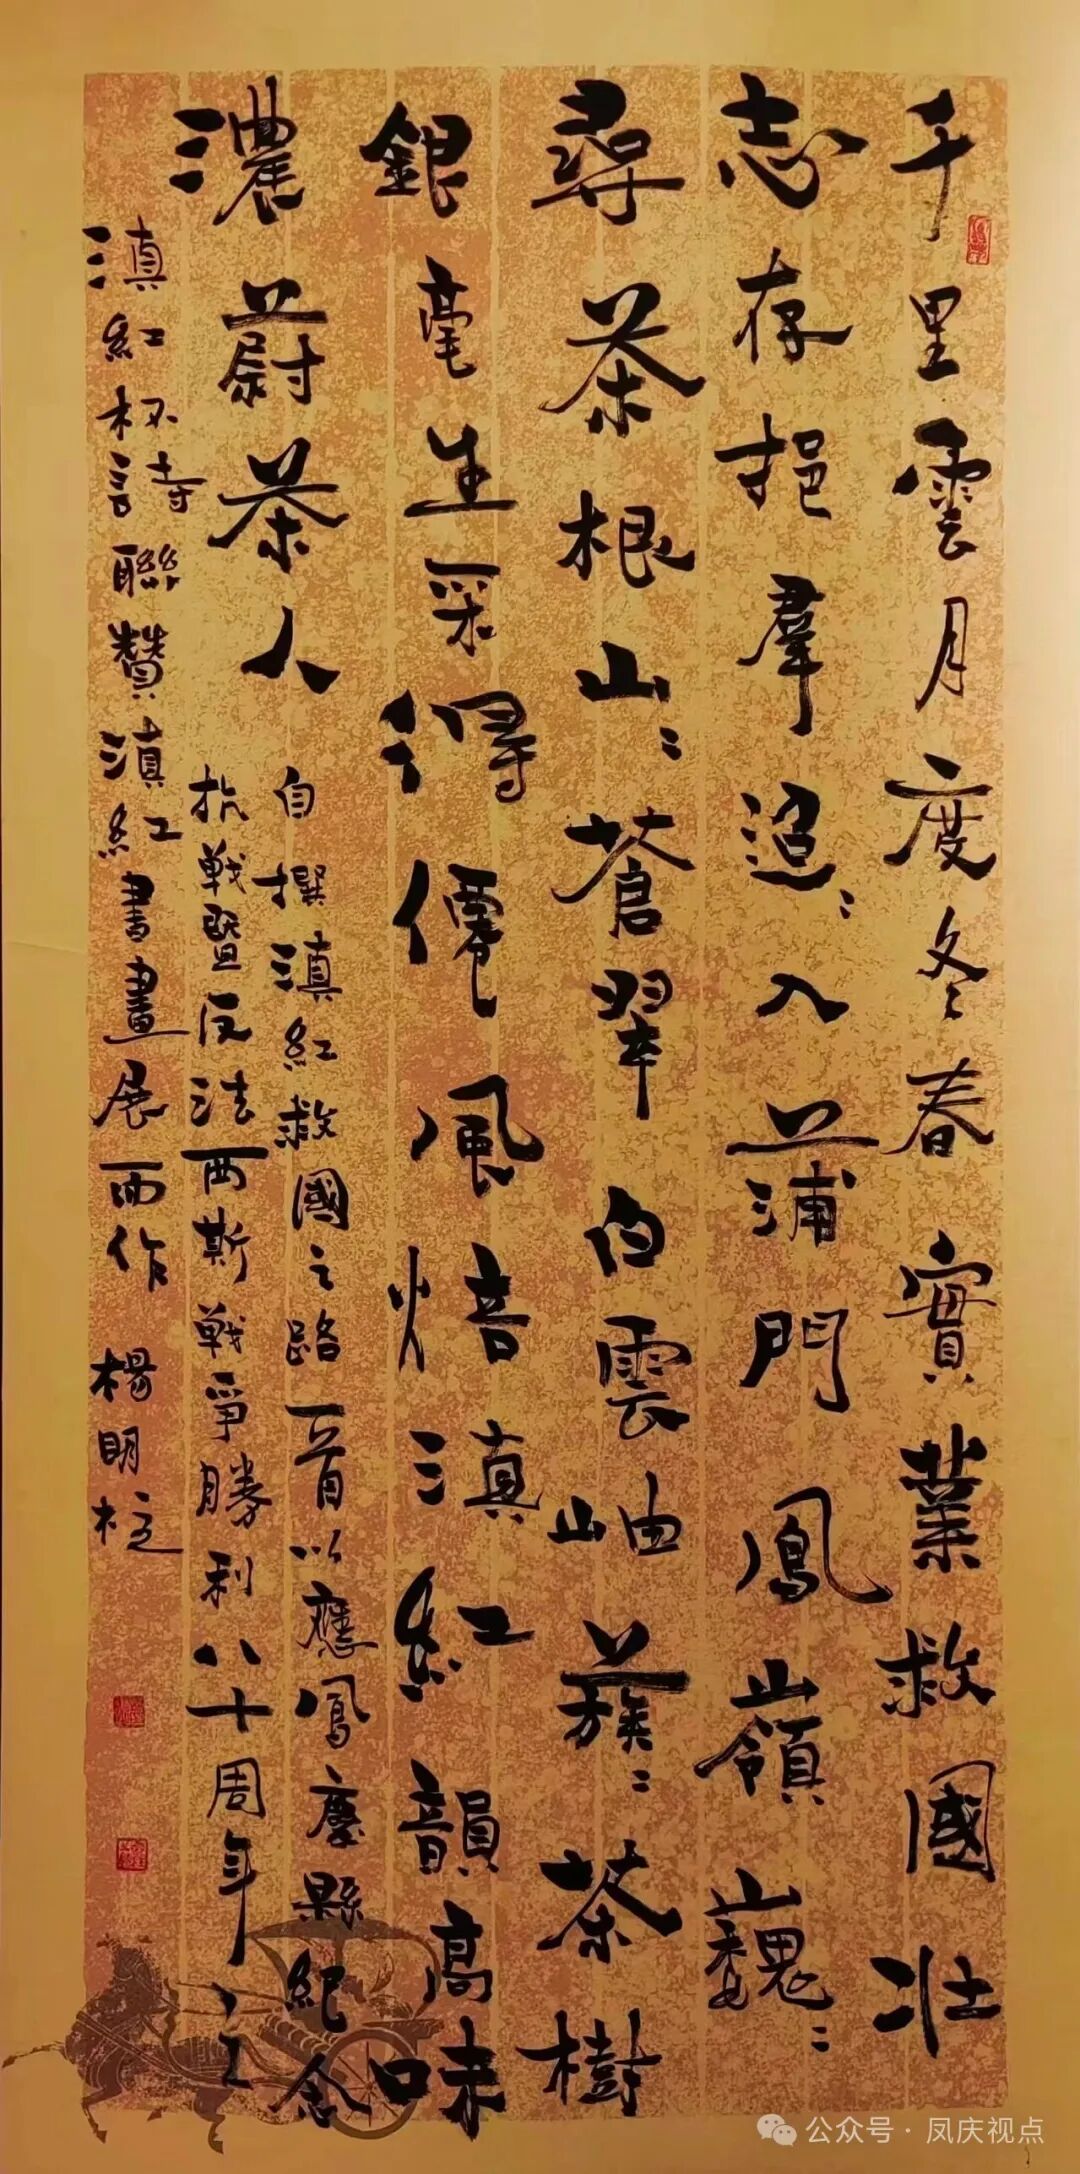 千里雲月度冬春實業救國壯
志存挹羣迢〻入蒲門鳳嶺巍〻
尋茶根山〻蒼翠白雲岫蔟〻茶樹
銀毫生采得僊風焙滇紅韻高味
濃蔚茶人
自撰滇紅救國之路一首以應鳳慶縣紀念
抗戰暨反法西斯戰爭勝利八十周年之
滇紅杯詩聯贊滇紅書畫展而作 楊明
公众号·凤庆视点